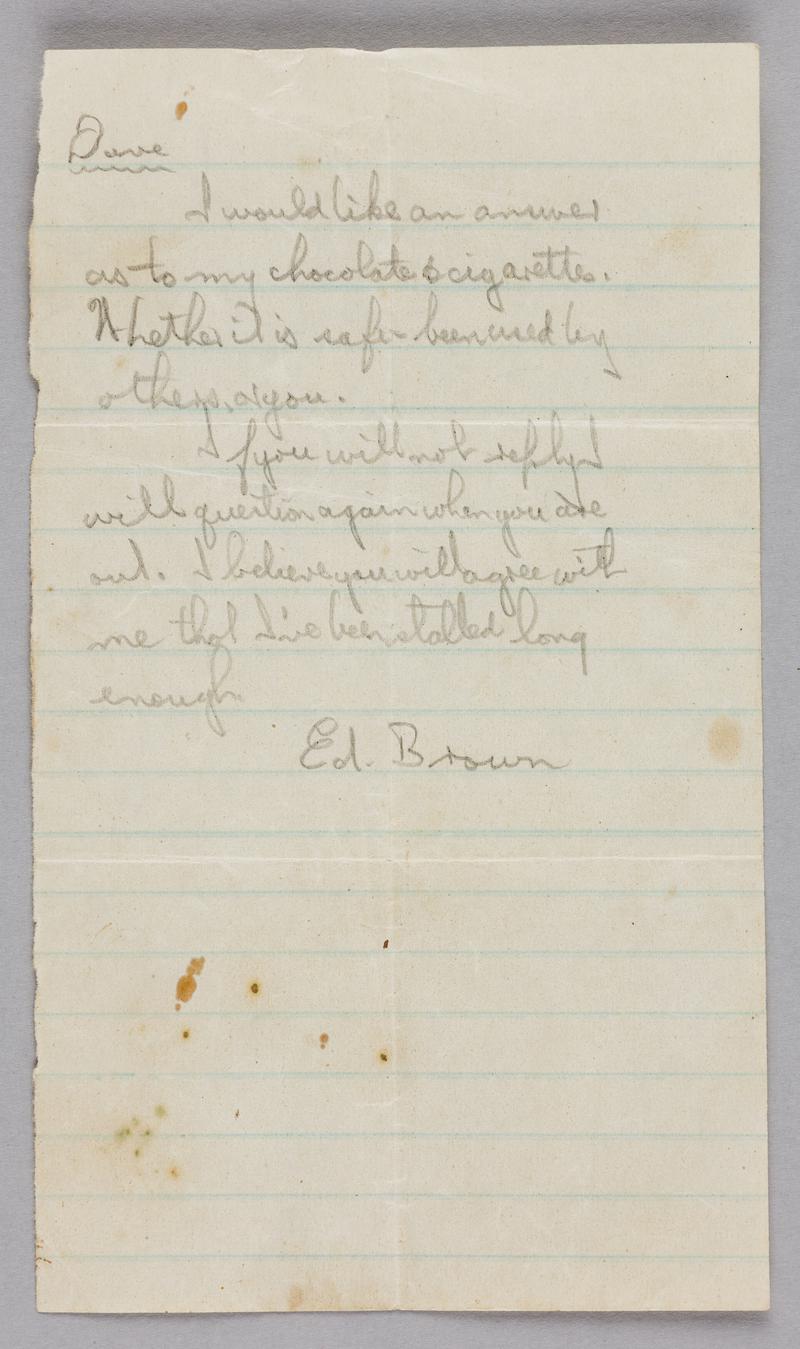 Dave
I would like an answer
as to my chocolate & cigarettes.
Whether it is safe - been used by
others, or you.
If you will not reply I
will question again when you are
out. I believe you will agree with
me that I've been stalled long
enough.
Ed. Brown